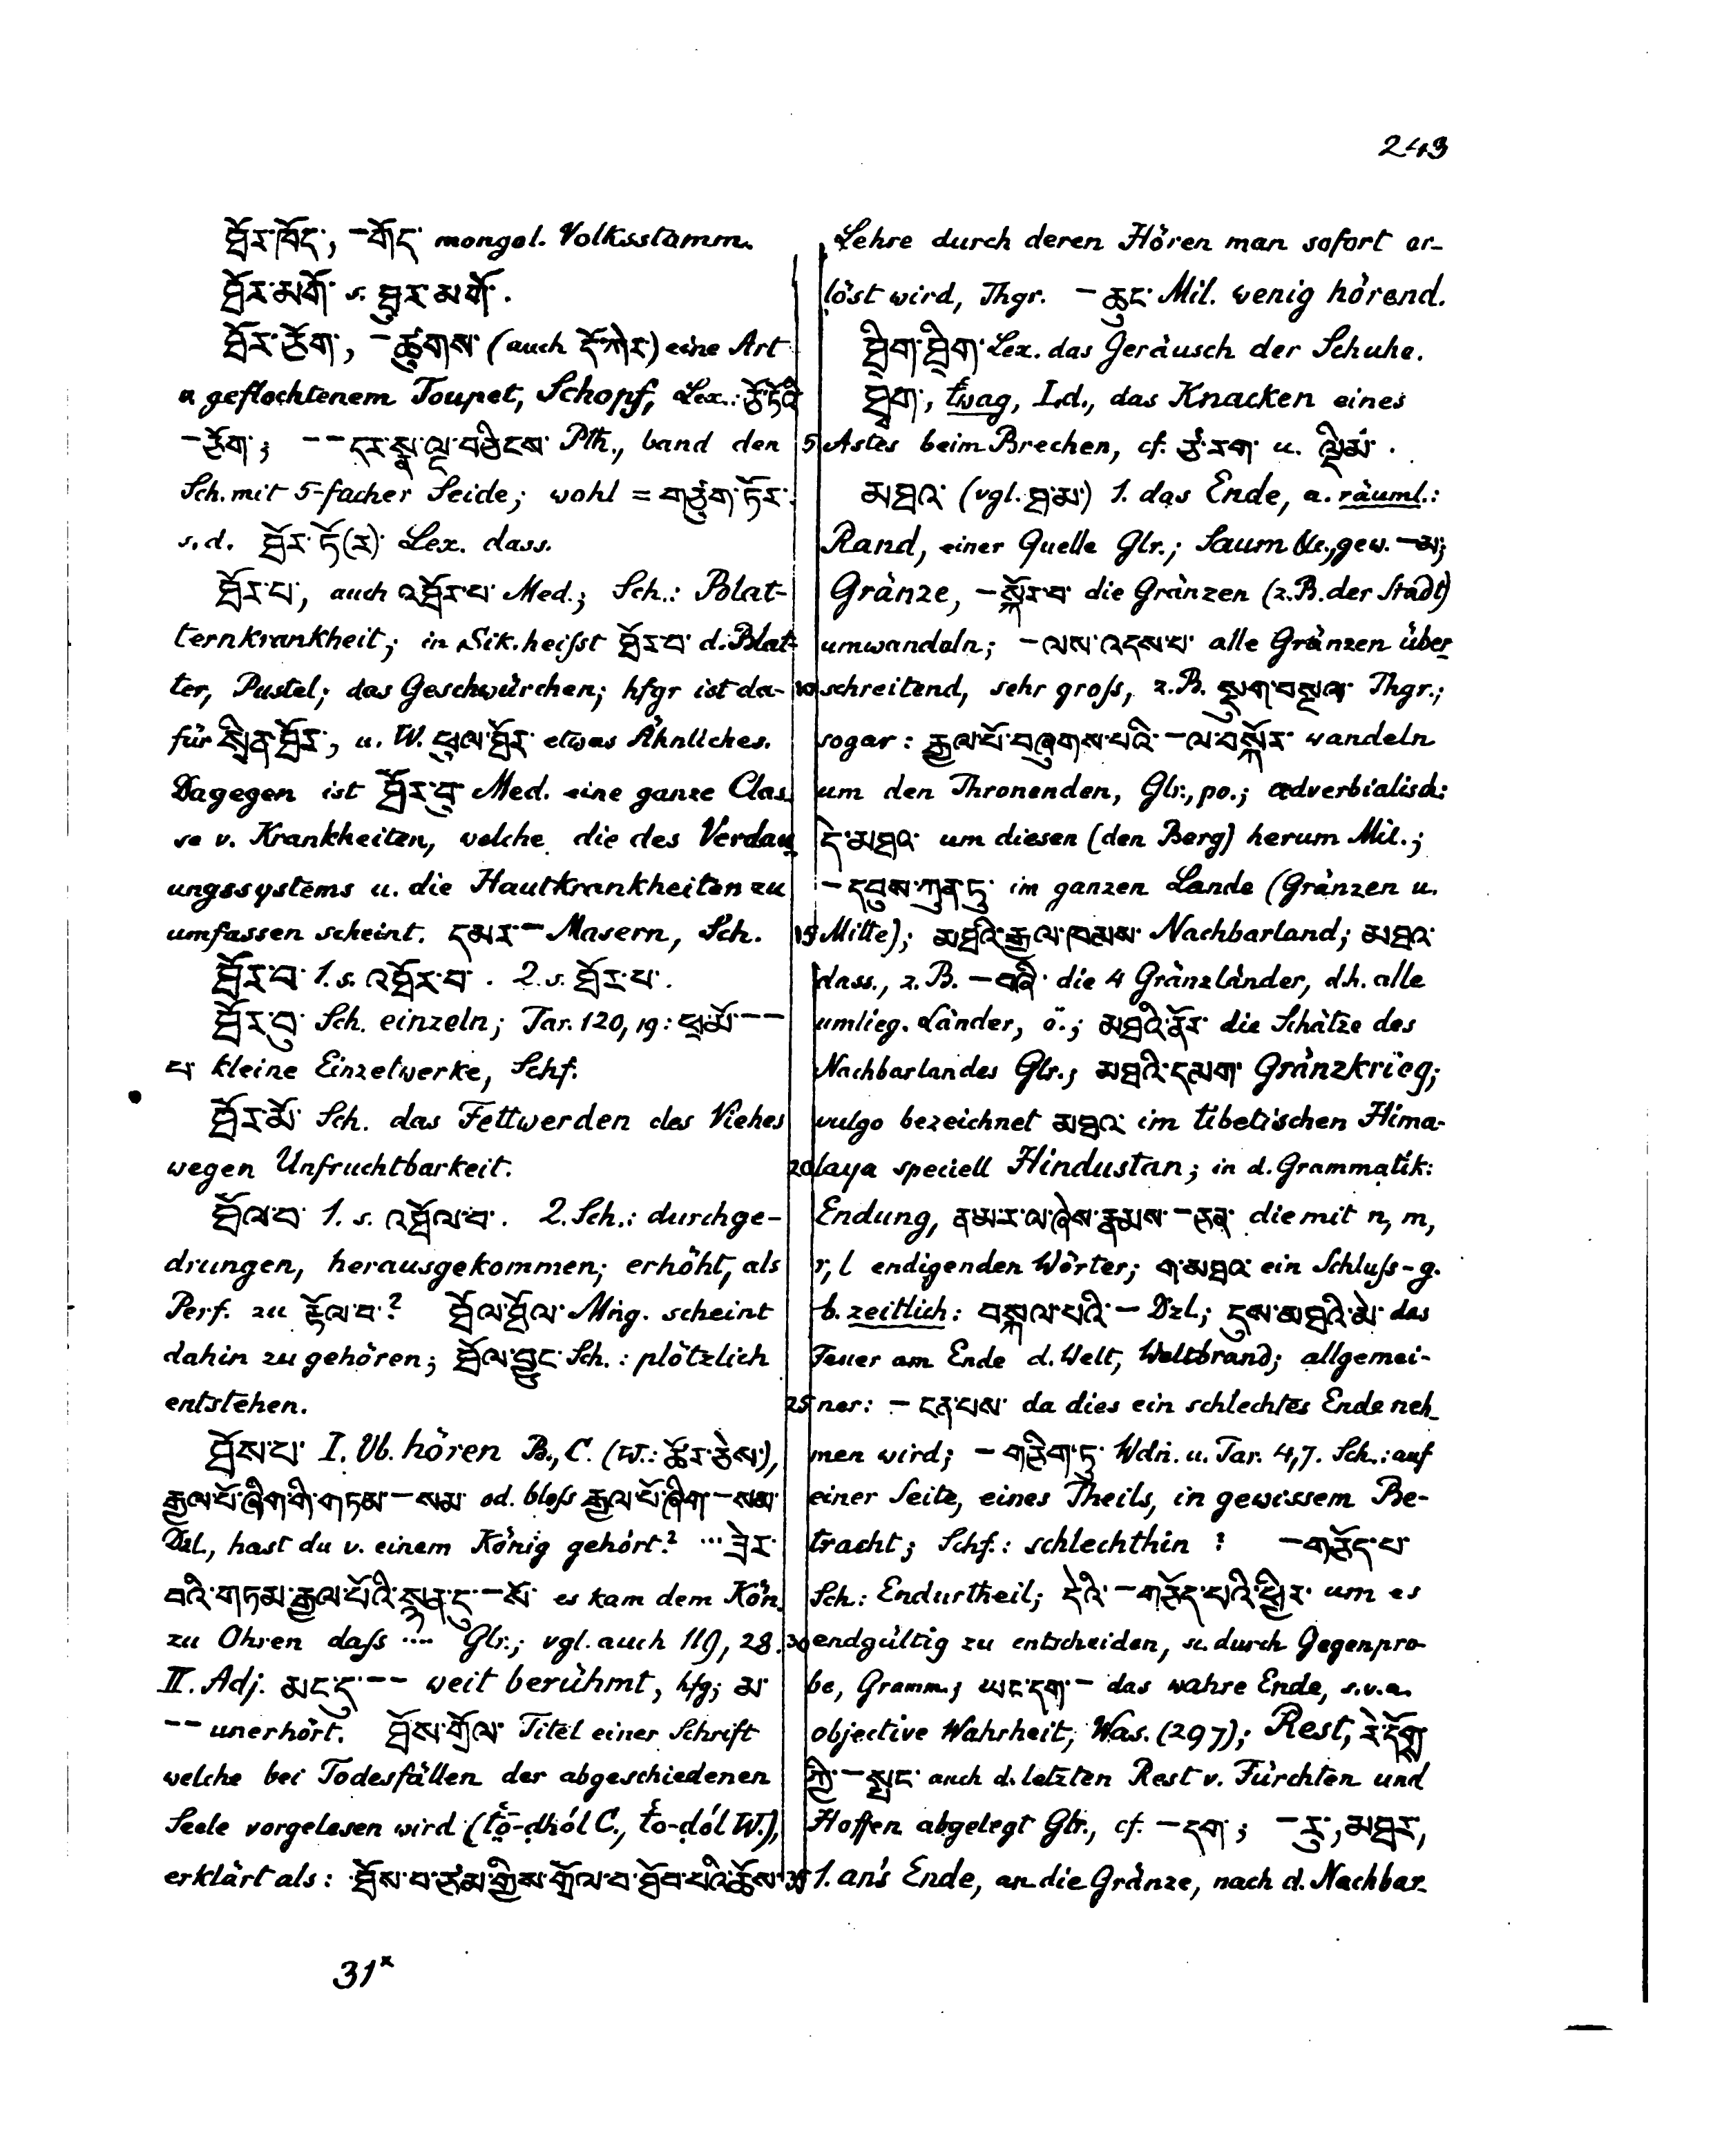 243
ཐོར་ཁོད་, –གོད་ mongol. Volksstamm.
ཐོར་མགོ་ s. ཐུར་མགོ་.
ཐོར་ཙོག་, –ཚུགས་ (auch དོ་ཀེར་) eine Art
v. geflochtenem Toupet, Schopf, Lex.:
–ཙོག་; – – དར་སྣ་ལྔ་བཅིངས་ Pth., band den
Sch. mit 5-facher Seide; wohl = གཙུག་ཏོར་.
s. d. ཐོར་ཏོ(ར)་ Lex. dass.
ཐོར་པ་, auch འཐོར་པ་ Med.; Sch.: Blat-
ternkrankheit; in Sik. heisst ཐོར་བ་ d. Blat-
ter, Pustel; das Geschwürchen; hfgr ist da-
für སྲིན་ཐོར་, u. W. ཕྲུལ་ཐོར་ etwas Ähnliches.
Dagegen ist ཐོར་བུ་ Med. eine ganze Clas-
se v. Krankheiten, welche die des Verdau-
ungssystems u. die Hautkrankheiten zu
umfassen scheint. དམར་– Masern, Sch.
ཐོར་བ་ 1. s. འཐོར་བ་. 2. s. ཐོར་པ་.
ཐོར་བུ་ Sch. einzeln; Tar. 120, 19: ཕྲ་མོ་– –
པ་ kleine Einzelwerke, Schf.
ཐོར་མོ་ Sch. das Fettwerden des Viehes
wegen Unfruchtbarkeit.
ཐོལ་བ་ 1. s. འཐོལ་བ་. 2. Sch.: durchge-
drungen, herausgekommen; erhöht, als
Perf. zu རྟོལ་བ་? ཐོལ་ཐོལ་ Mng. scheint
dahin zu gehören; ཐོལ་བྱུང་ Sch.: plötzlich
entstehen.
ཐོས་པ་ I. Vb. hören B., C. (W.: ཚོར་ཅེས་),
རྒྱལ་པོ་ཞིག་གི་གཏམ་–སམ་ od. bloss རྒྱལ་པོ་ཞིག་–སམ་
Dzl., hast du v. einem König gehört? ... ཟེར་
བའི་གཏམ་རྒྱལ་པོའི་སྙན་དུ་–སོ་ es kam dem Kön.
zu Ohren dass .... Glr.; vgl. auch 119, 28.
II. Adj. མང་དུ་– – weit berühmt, hfg; མ་
– – unerhört. ཐོས་གྲོལ་ Titel einer Schrift
welche bei Todesfällen der abgeschiedenen
Seele vorgelesen wird (ṫō-ḍhól C., ṫo-ḍól W.),
erklärt als: ཐོས་པ་ཙམ་གྱིས་གྲོལ་བ་ཐོབ་པའི་ཆོས་
Lehre durch deren Hören man sofort er-
löst wird, Thgr. –ཆུང་ Mil. wenig hörend.
ཐྲིག་ཐྲིག་ Lex. das Geräusch der Schuhe.
ཐྭག་, ṫwag, Ld., das Knacken eines
5 Astes beim Brechen, cf. ཙ་རག་ u. ལྡེམ་.
མཐའ་ (vgl. ཐ་མ་) 1. das Ende, a. räuml.:
Rand, einer Quelle Glr.; Saum &c., gew. –མ;
Gränze, –སྐོར་བ་ die Gränzen (z. B. der Stadt)
umwandeln; –ལས་འདས་པ་ alle Gränzen über-
10 schreitend, sehr gross, z. B. སྡུག་བསྔལ་ Thgr.;
sogar: རྒྱལ་པོ་བཞུགས་པའི་–ལ་བསྐོར་ wandeln
um den Thronenden, Glr., po.; adverbialisch:
དེ་མཐའ་ um diesen (den Berg) herum Mil.;
–དབུས་ཀུན་ཏུ་ im ganzen Lande (Gränzen u.
15 Mitte); མཐའི་རྒྱལ་ཁམས་ Nachbarland; མཐའ་
dass., z. B. –བཞི་ die 4 Gränzländer, d.h. alle
umlieg. Länder, ö.; མཐའི་ནོར་ die Schätze des
Nachbarlandes Glr.; མཐའི་དམག་ Gränzkrieg;
vulgo bezeichnet མཐའ་ im tibetischen Hima-
20 laya speciell Hindustan; in d. Grammatik:
Endung, ན་མ་ར་ལ་ཞེས་རྣམས་–ཅན་ die mit n, m,
r, l endigenden Wörter; ག་མཐའ་ ein Schluss-g.
b. zeitlich: བསྐལ་པའི་– Dzl.; དུས་མཐའི་མེ་ das
Feuer am Ende d. Welt, Weltbrand; allgemei-
25 ner: –ངན་པས་ da dies ein schlechtes Ende neh-
men wird; –གཅིག་ཏུ་ Wdn. u. Tar. 4,7. Sch.: auf
einer Seite, eines Theils, in gewissem Be-
tracht; Schf.: schlechthin? –གཅོད་པ་
Sch: Endurtheil; དེའི་–གཅོད་པའི་ཕྱིར་ um es
30 endgültig zu entscheiden, sc. durch Gegenpro-
be, Gramm.; ཡང་དག་– das wahre Ende, s.v.a.
objective Wahrheit, Was. (297); Rest, རེ་དོགས་
ཀྱི་–སྤྱང་ auch d. letzten Rest v. Fürchten und
Hoffen abgelegt Glr., cf. –དག་; –རུ་, མཐར་,
35 1. an's Ende, an die Gränze, nach d. Nachbar-
31*